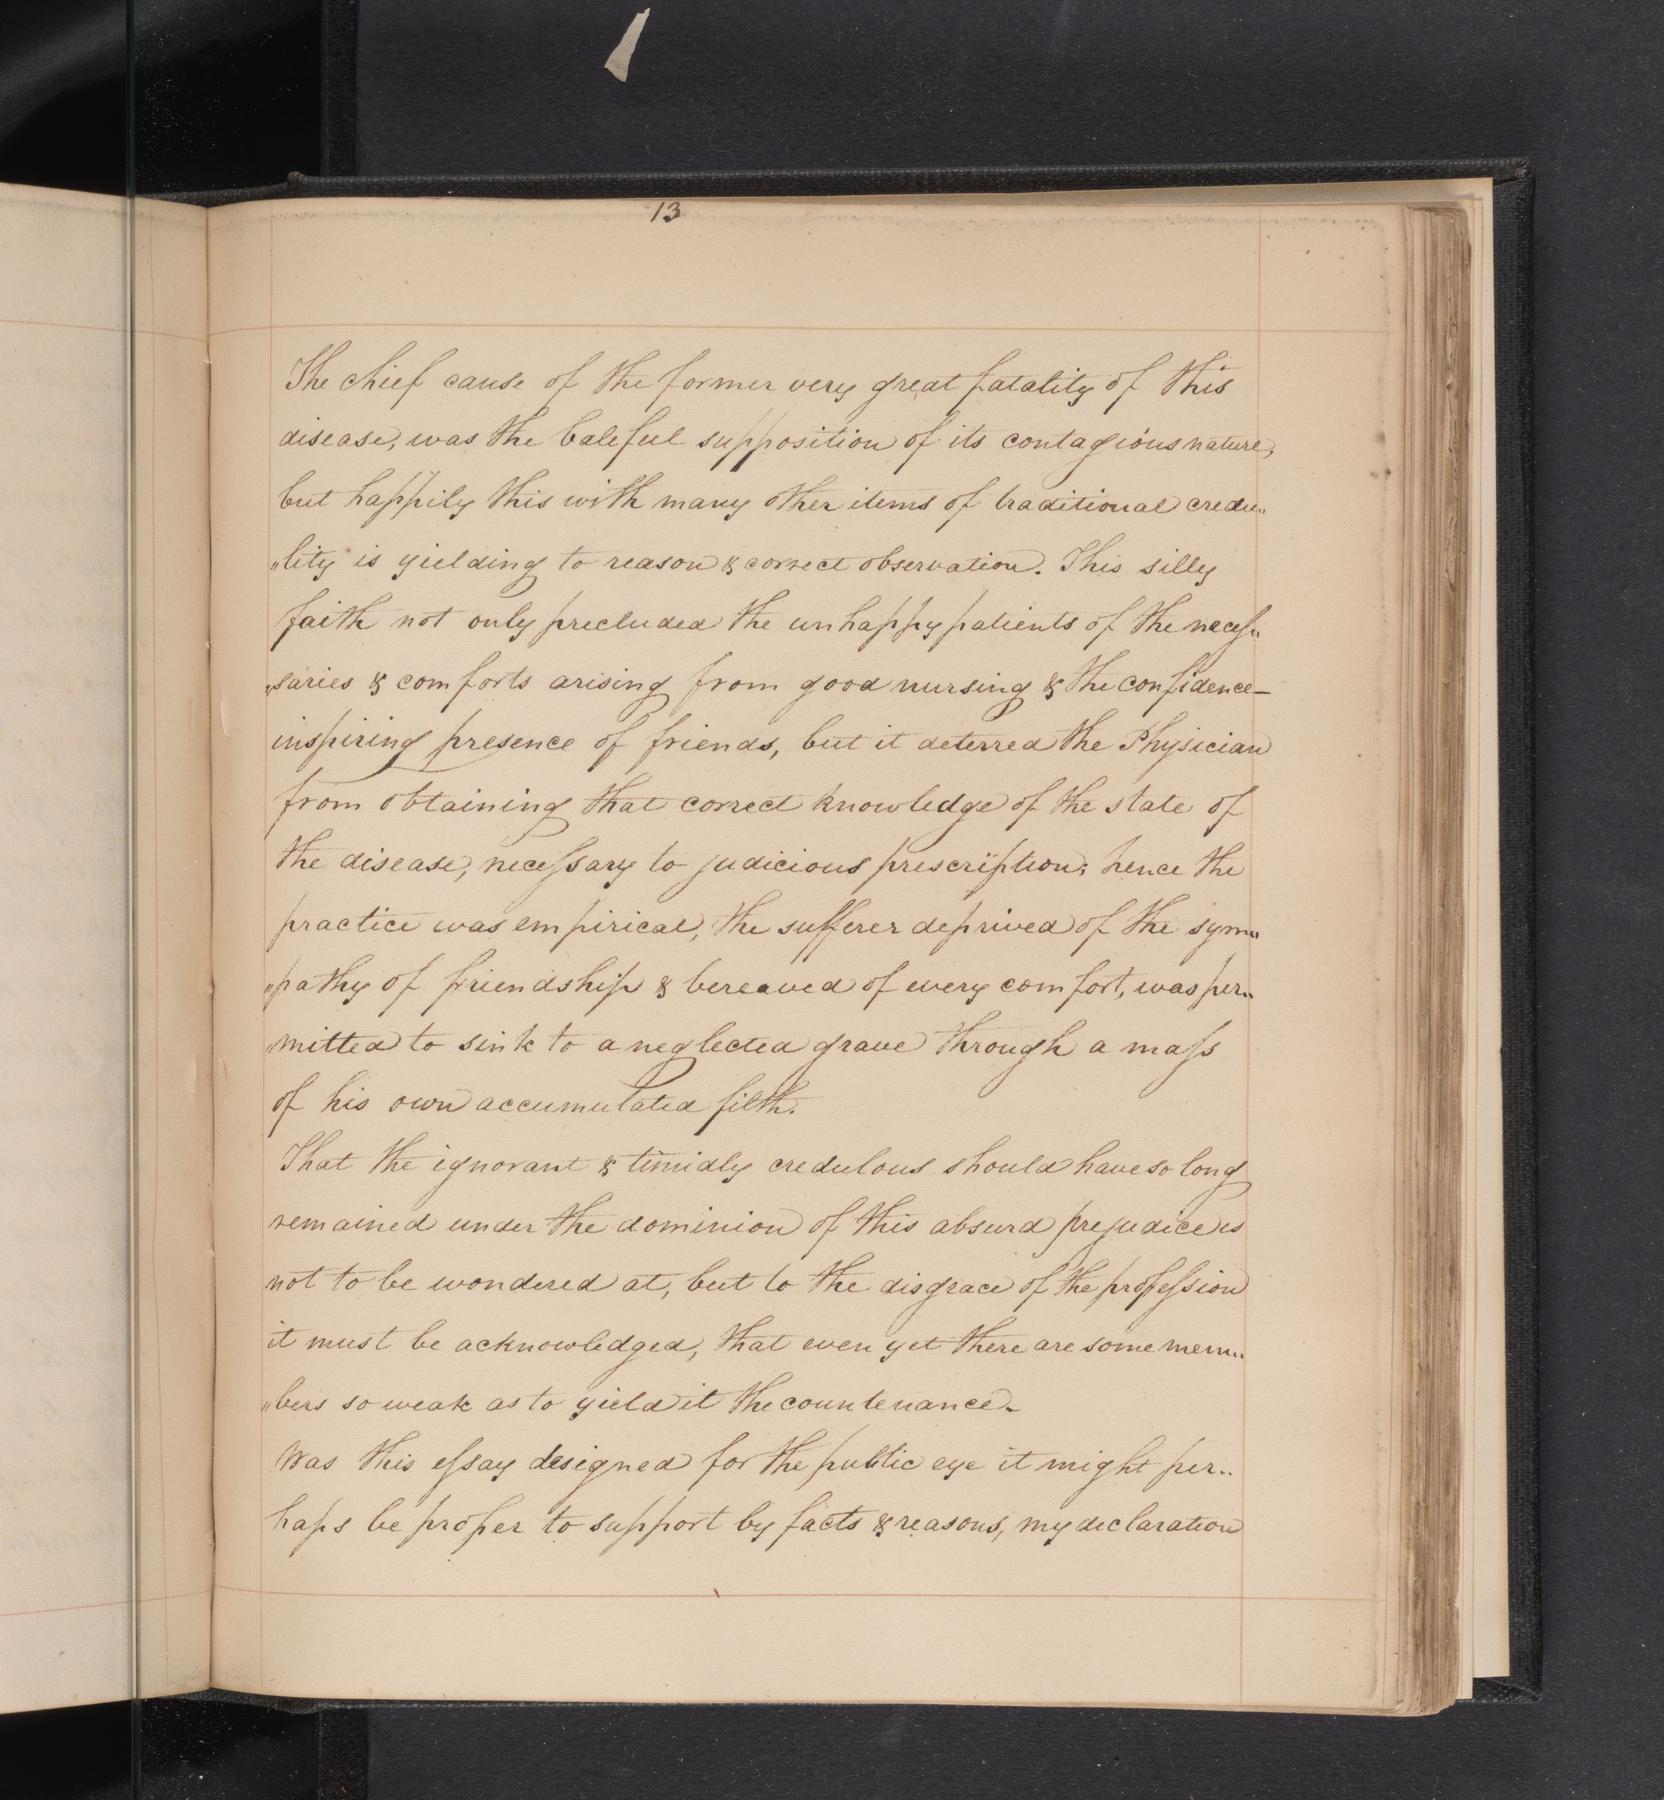 13
The chief cause of the former very great fatality of this
disease, was the baleful supposition of its contagious nature,
but happily this with many other items of traditional credu„
„lity is yielding to reason & correct observation. This silly
faith not only precluded the unhappy patients of the neces„
„saries & comforts arising from good nursing & the confidence–
inspiring presence of friends, but it deterred the Physician
from obtaining that correct knowledge of the state of
the disease, necessary to judicious prescription; hence the
practice was empirical, the sufferer deprived of the sym„
„pathy of friendship & bereaved of every comfort, was per„
„mitted to sink to a neglected grave through a mass
of his own accumulated filth.
That the ignorant & timidly credulous should have so long
remained under the dominion of this absurd prejudice is
not to be wondered at, but to the disgrace of the profession
it must be acknowledged, that even yet there are some mem„
„bers so weak as to yield it the countenance.
Was this essay designed for the public eye it might per„
haps be proper to support by facts & reasons, my declaration